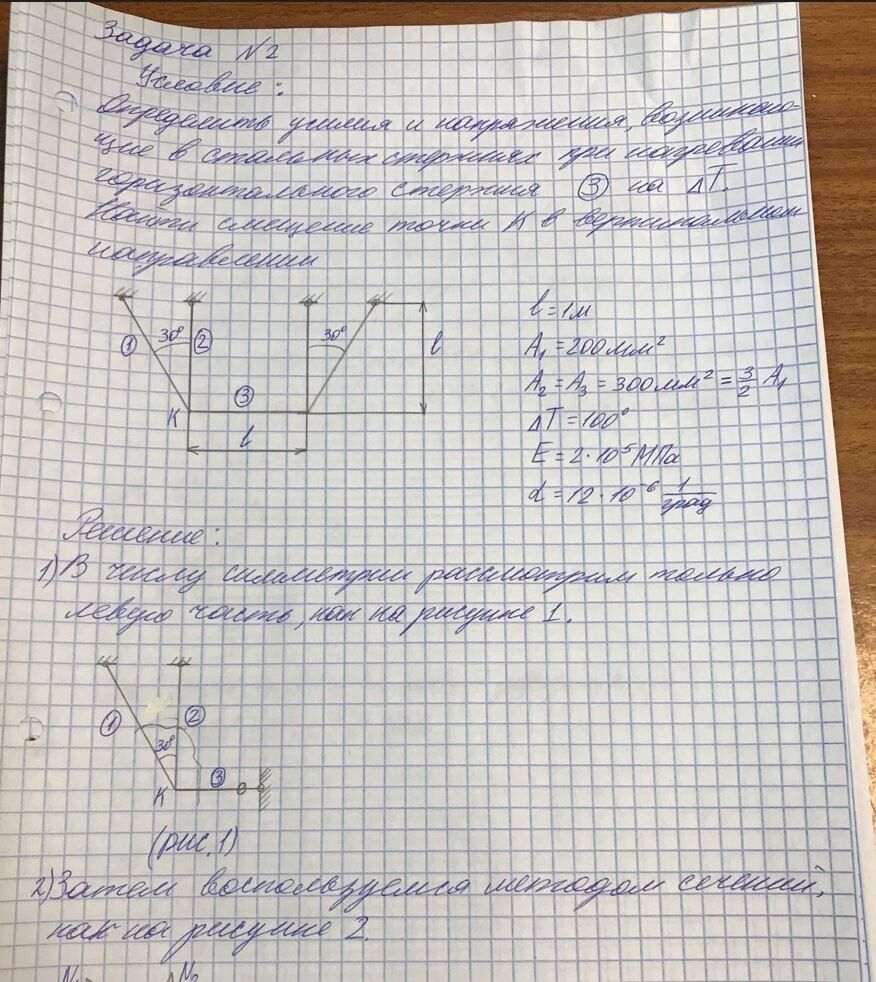 Задача N2
Условие:
Определить усилия и напряжения, возникаю-
щие в стальных стержнях при нагревании
горизонтального стержня ③ на ΔT.
Найти смещение точки K в вертикальном
направлении
① 30° ② 30° l
K ③
l
l = 1м
A₁ = 200мм²
A₂ = A₃ = 300мм² = 3/2 A₁
ΔT = 100°
E = 2·10⁵ МПа
α = 12·10⁻⁶ 1/град
Решение:
1) В силу симметрии рассмотрим только
левую часть, как на рисунке 1.
① ②
30°
K ③
(рис. 1)
2) Затем воспользуемся методом сечений,
как на рисунке 2.
N₁ N₂